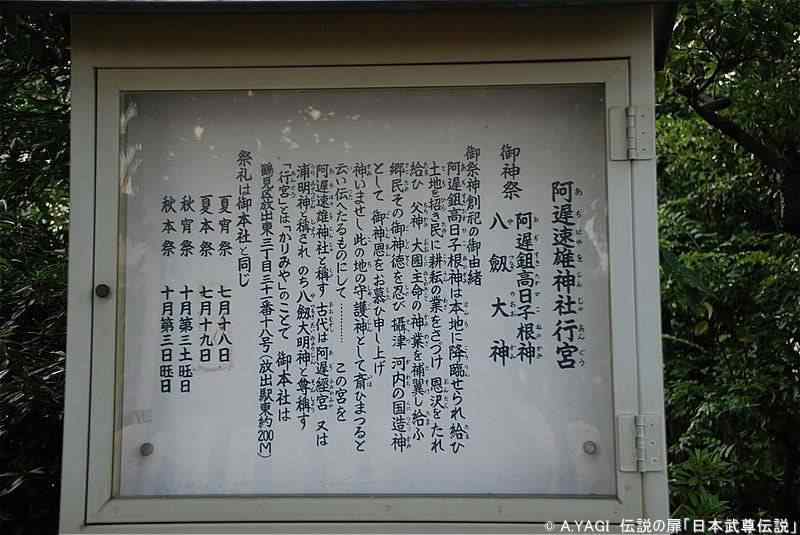 阿遅速雄神社行宮
御神祭 阿遅鉏高日子根神
八劔大神
御祭神創祀の御由緒
阿遅鉏高日子根神は本地に降臨せられ給ひ
土地を拓き民に耕耘の業をさづけ 恩沢をたれ
給ひ 父神 大國主命の神業を補翼し給ふ
郷民その御神徳を忍び 攝津 河内の国造神
として 御神恩をお慕ひ申し上げ
神いませし此の地の守護神として斎ひまつると
云い伝へたるものにして……… この宮を
阿遅速雄神社と稱す 古代は阿遅經宮 又は
浦明神と稱され のち八劔大明神と尊稱す
「行宮」とは「かりみや」のことで 御本社は
鶴見区放出東三丁目三十一番十八号(放出駅東約200M)
祭礼は御本社と同じ
夏宵祭 七月十八日
夏本祭 七月十九日
秋宵祭 十月第三土旺日
秋本祭 十月第三日旺日
© A.YAGI 伝説の扉「日本武尊伝説」